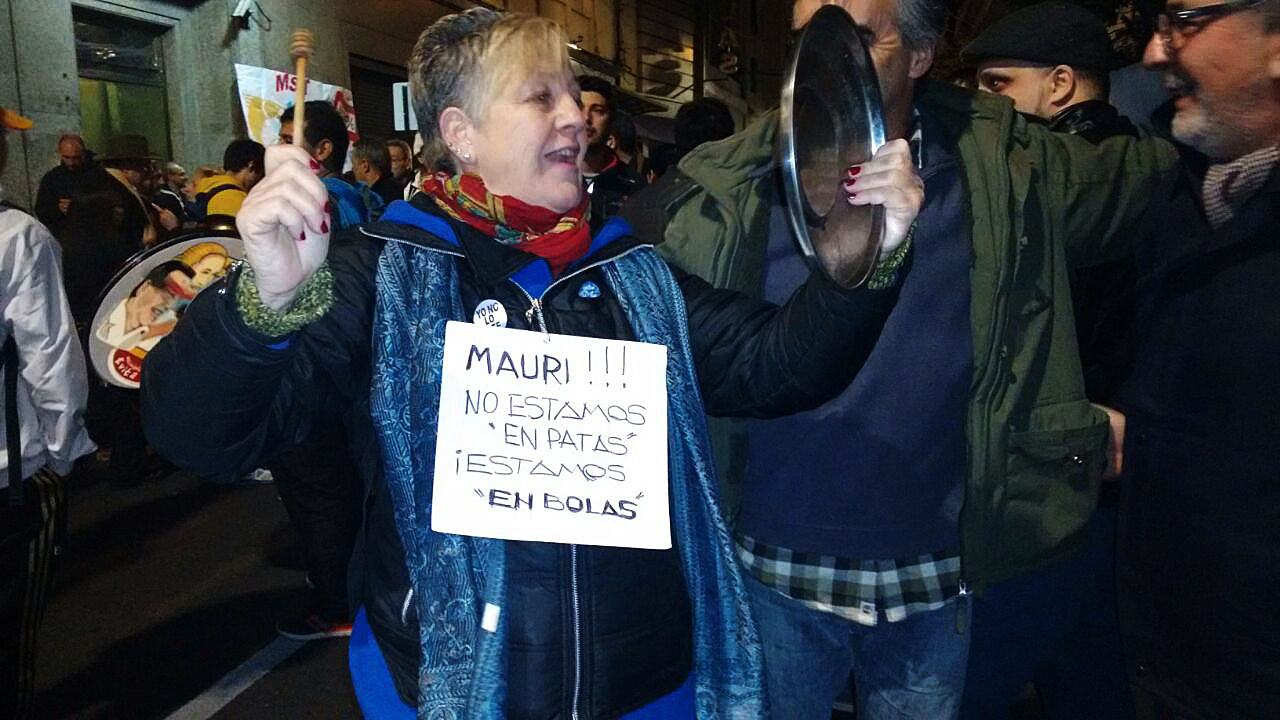 MS
YO NO
LO
MAURI !!!
NO ESTAMOS
"EN PATAS"
¡ESTAMOS
"EN BOLAS"
Evita